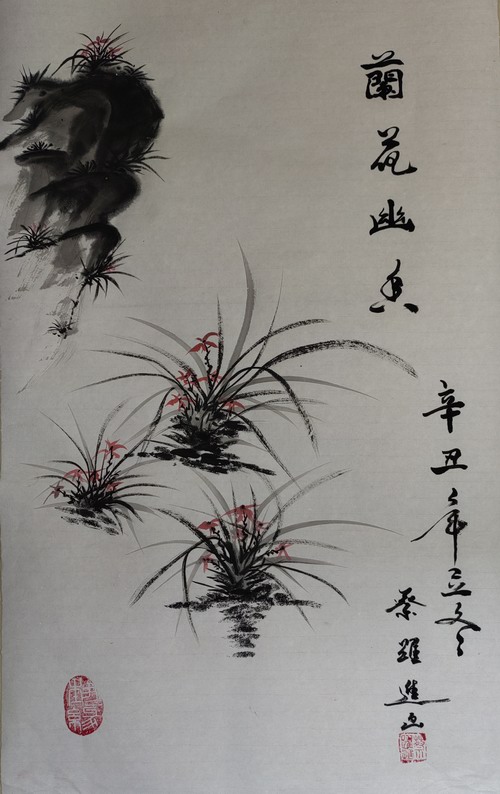 蘭花幽香
辛丑年立冬
蔡躍進画